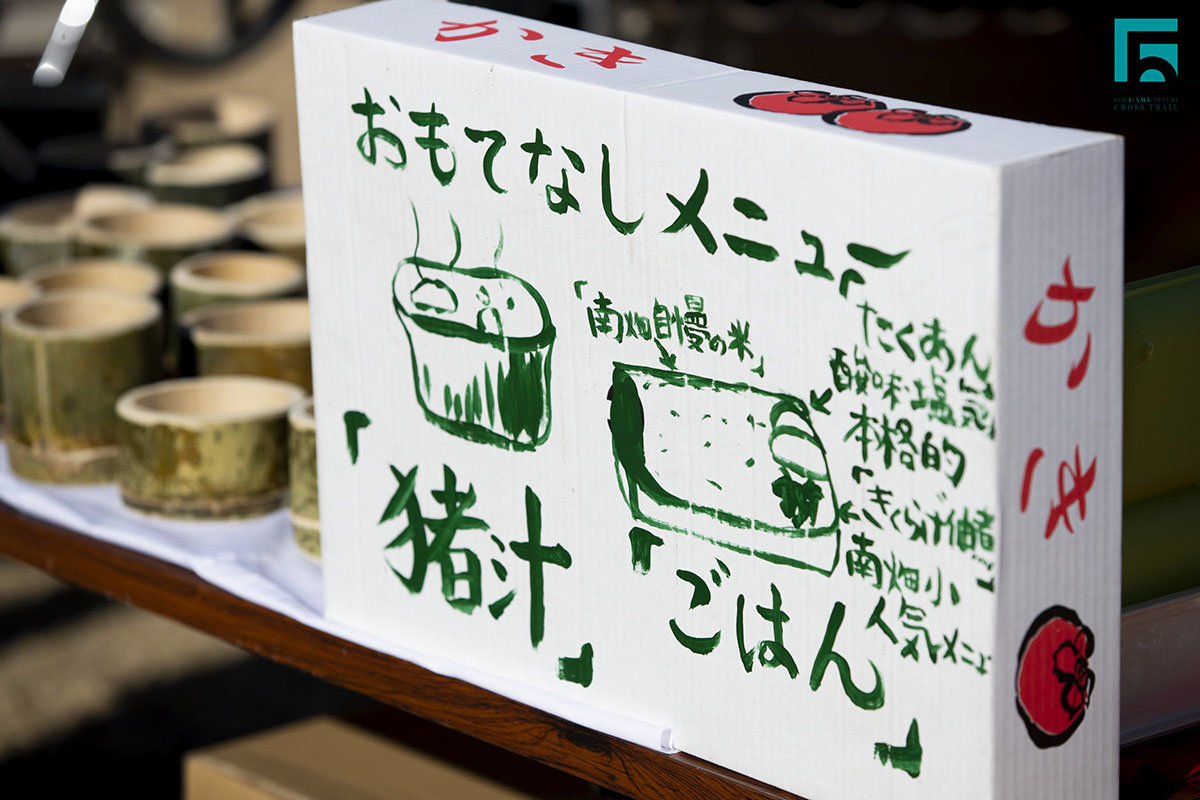 かき
おもてなしメニュー
「南畑自慢の米」
「たくあん」
酸味塩気
本格的
「きくらげ佃煮」
南畑小
人気メニュー
「猪汁」
「ごはん」
かき
CROSS TRAIL